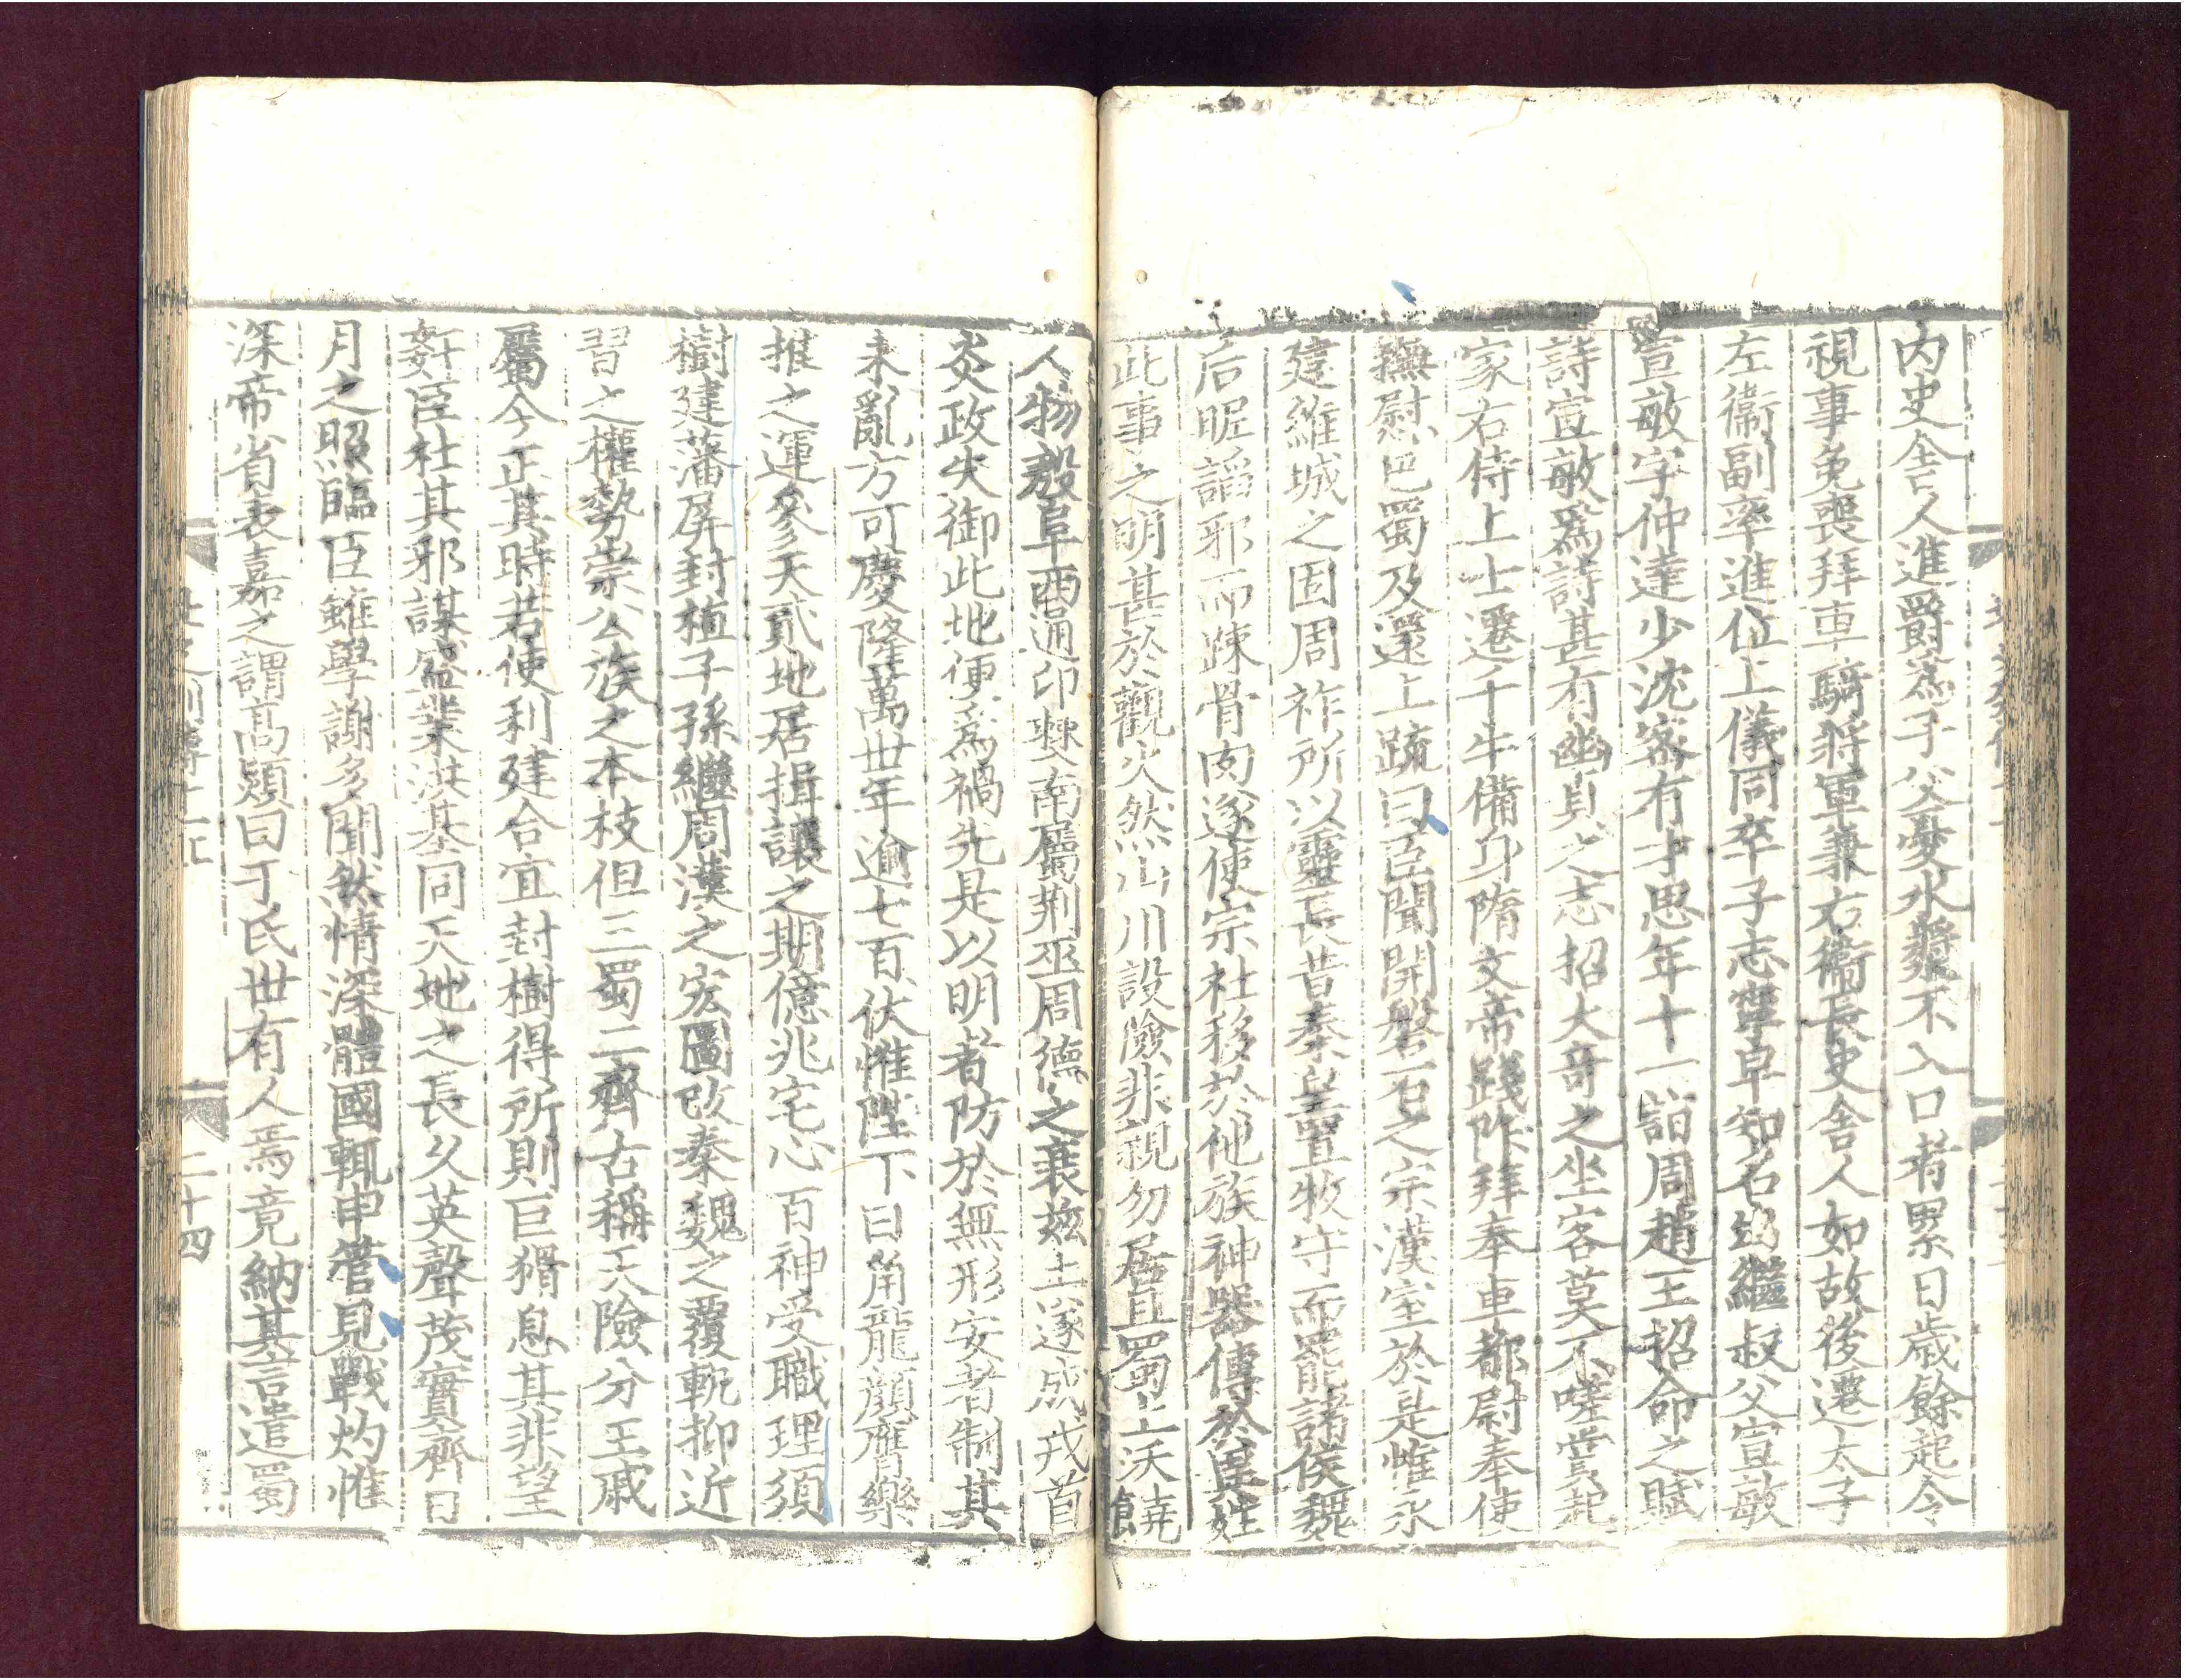 內史舍人進爵爲子父憂水漿不入口者累日歳餘起令
視事免喪拜車騎將軍兼右衞長史舍人如故後遷太子
左衞副率進位上儀同卒子志寧早知名幼繼叔父宣敏
宣敏字仲達少沈密有才思年十一詣周趙王招命之賦
詩宣敏爲詩甚有幽貞之志招大奇之坐客莫不嗟賞起
家右侍上士遷千牛備身隋文帝踐阼拜奉車都尉奉使
撫慰巴蜀及還上疏曰臣聞開磐石之宗漢室於是惟永
建維城之固周祚所以靈長昔秦皇置牧守而罷諸侯魏
后昵謟邪而踈骨肉遂使宗社移於他族神器傳於異姓
此事之明甚於觀火然山川設險非親勿居且蜀土沃饒
人物殷阜西通卭㯥南屬荊巫周德之衰兹土遂成戎首
炎政失御此地便爲禍先是以明者防於無形安者制其
未亂方可慶隆萬世年逾七百伏惟陛下日角龍顔膺樂
推之運參天貳地居揖讓之期億兆宅心百神受職理須
樹建藩屏封植子孫繼周漢之宏圖改秦魏之覆軌抑近
習之權勢崇公族之本枝但三蜀二齊古稱天險分王戚
屬今正其時若使利建合宜封樹得所則巨猾息其非望
姧臣杜其邪謀盛業洪基同天地之長久英聲茂實齊日
月之照臨臣雖學謝多聞然情深體國輒申管見戰灼惟
深帝省表嘉之謂高熲曰于氏世有人焉竟納其言遣蜀
二十四